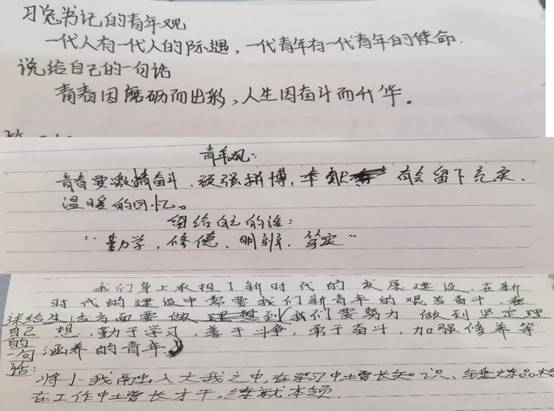 习总书记的青年观
一代人有一代人的际遇，一代青年有一代青年的使命.
说给自己的一句话
青春因磨砺而出彩，人生因奋斗而升华。
青年观:
青春要激情奋斗、顽强拼搏，奉献 才会留下充实、
温暖的回忆。
给自己的话:
"勤学，修德、明辨、笃定"
我们身上承担了新时代的发展建设，在新
时代的建设中需要我们新青年的艰苦奋斗，在
生活方面要做 理想到 我们要努力 做到坚定理
想，勤于学习，善于斗争，勇于奋斗，加强修养等
涵养的青年
谈给自己的一句话:
将小我融入大我之中，在学习中增长知识、锤炼品格
在工作中增长才干，练就本领.